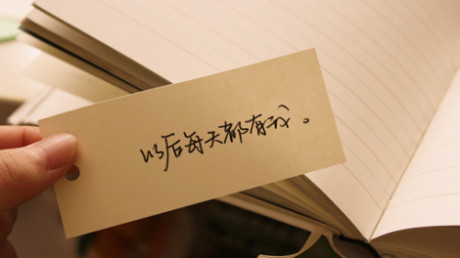 以后每天都有我。